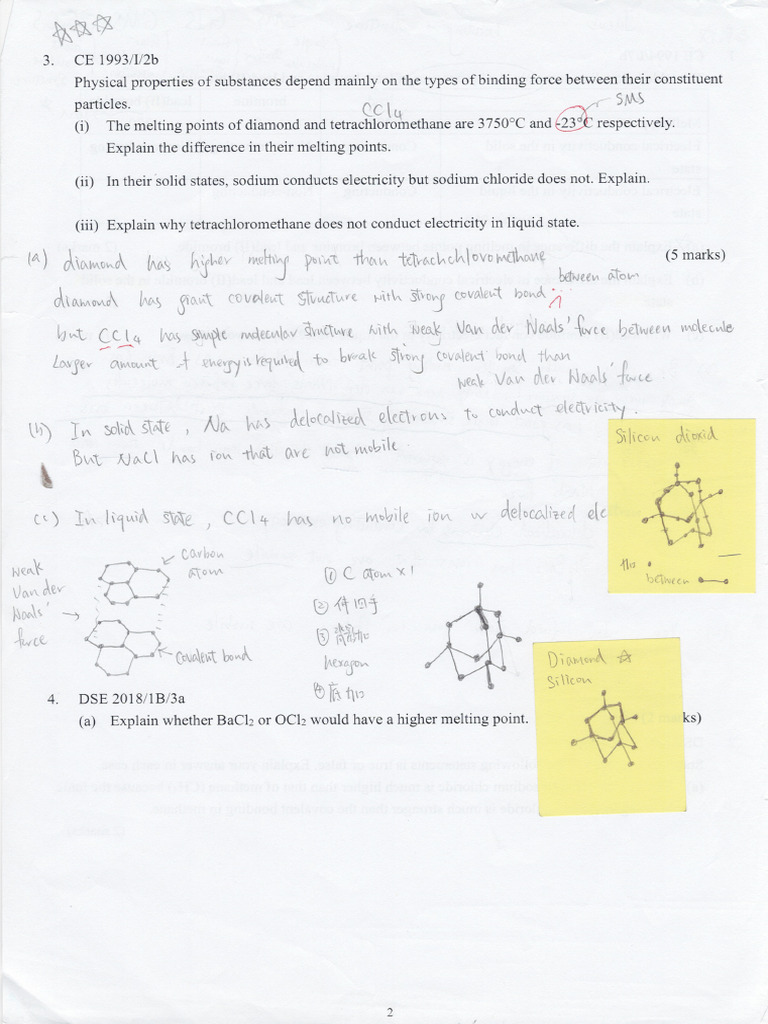 3. CE 1993/I/2b
Physical properties of substances depend mainly on the types of binding force between their constituent
particles.
CCl4
SMS
(i) The melting points of diamond and tetrachloromethane are 3750°C and -23°C respectively.
Explain the difference in their melting points.
(ii) In their solid states, sodium conducts electricity but sodium chloride does not. Explain.
(iii) Explain why tetrachloromethane does not conduct electricity in liquid state.
(5 marks)
(a) diamond has higher melting point than tetrachchloromethane
between atom
diamond has giant covalent structure with strong covalent bond
but CCl4 has simple molecular structure with weak Van der Waals' force between molecule
Larger amount of energy is required to break strong covalent bond than
weak Van der Waals' force
(b) In solid state, Na has delocalized electrons to conduct electricity.
But NaCl has ion that are not mobile.
Silicon dioxid
(c) In liquid state, CCl4 has no mobile ion or delocalized ele
加
between
weak
Van der
Waals'
force
carbon
atom
covalent bond
① C atom x1
② 伸四手
③
hexagon
④ 底加
Diamond ☆
Silicon
4. DSE 2018/1B/3a
(a) Explain whether BaCl₂ or OCl₂ would have a higher melting point.
ks)
2